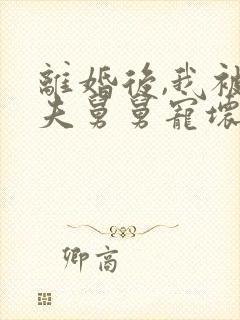 離婚後,我被
夫舅舅寵壞
卿高